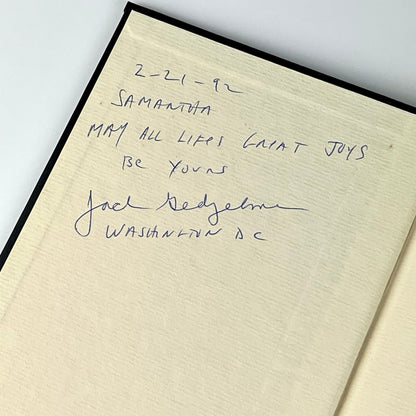 2-21-92
SAMANTHA
MAY ALL LIFES GREAT JOYS
BE YOURS
Jack
WASHINGTON DC